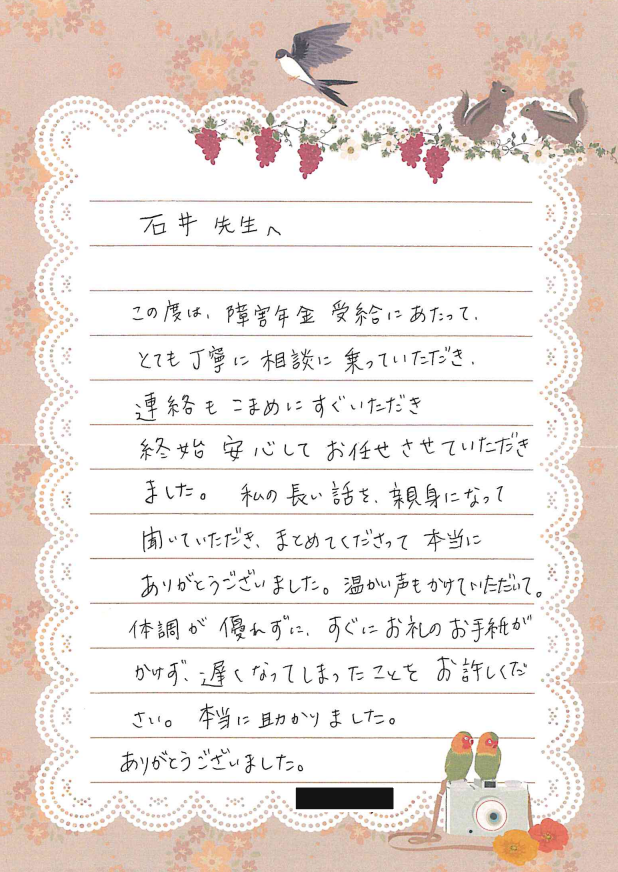 石井先生へ
この度は、障害年金受給にあたって、
とても丁寧に相談に乗っていただき、
連絡もこまめにすぐいただき
終始安心してお任せさせていただき
ました。私の長い話を、親身になって
聞いていただき、まとめてくださって本当に
ありがとうございました。温かい声もかけていただいて。
体調が優れずに、すぐにお礼のお手紙が
かけず、遅くなってしまったことをお許しくだ
さい。本当に助かりました。
ありがとうございました。